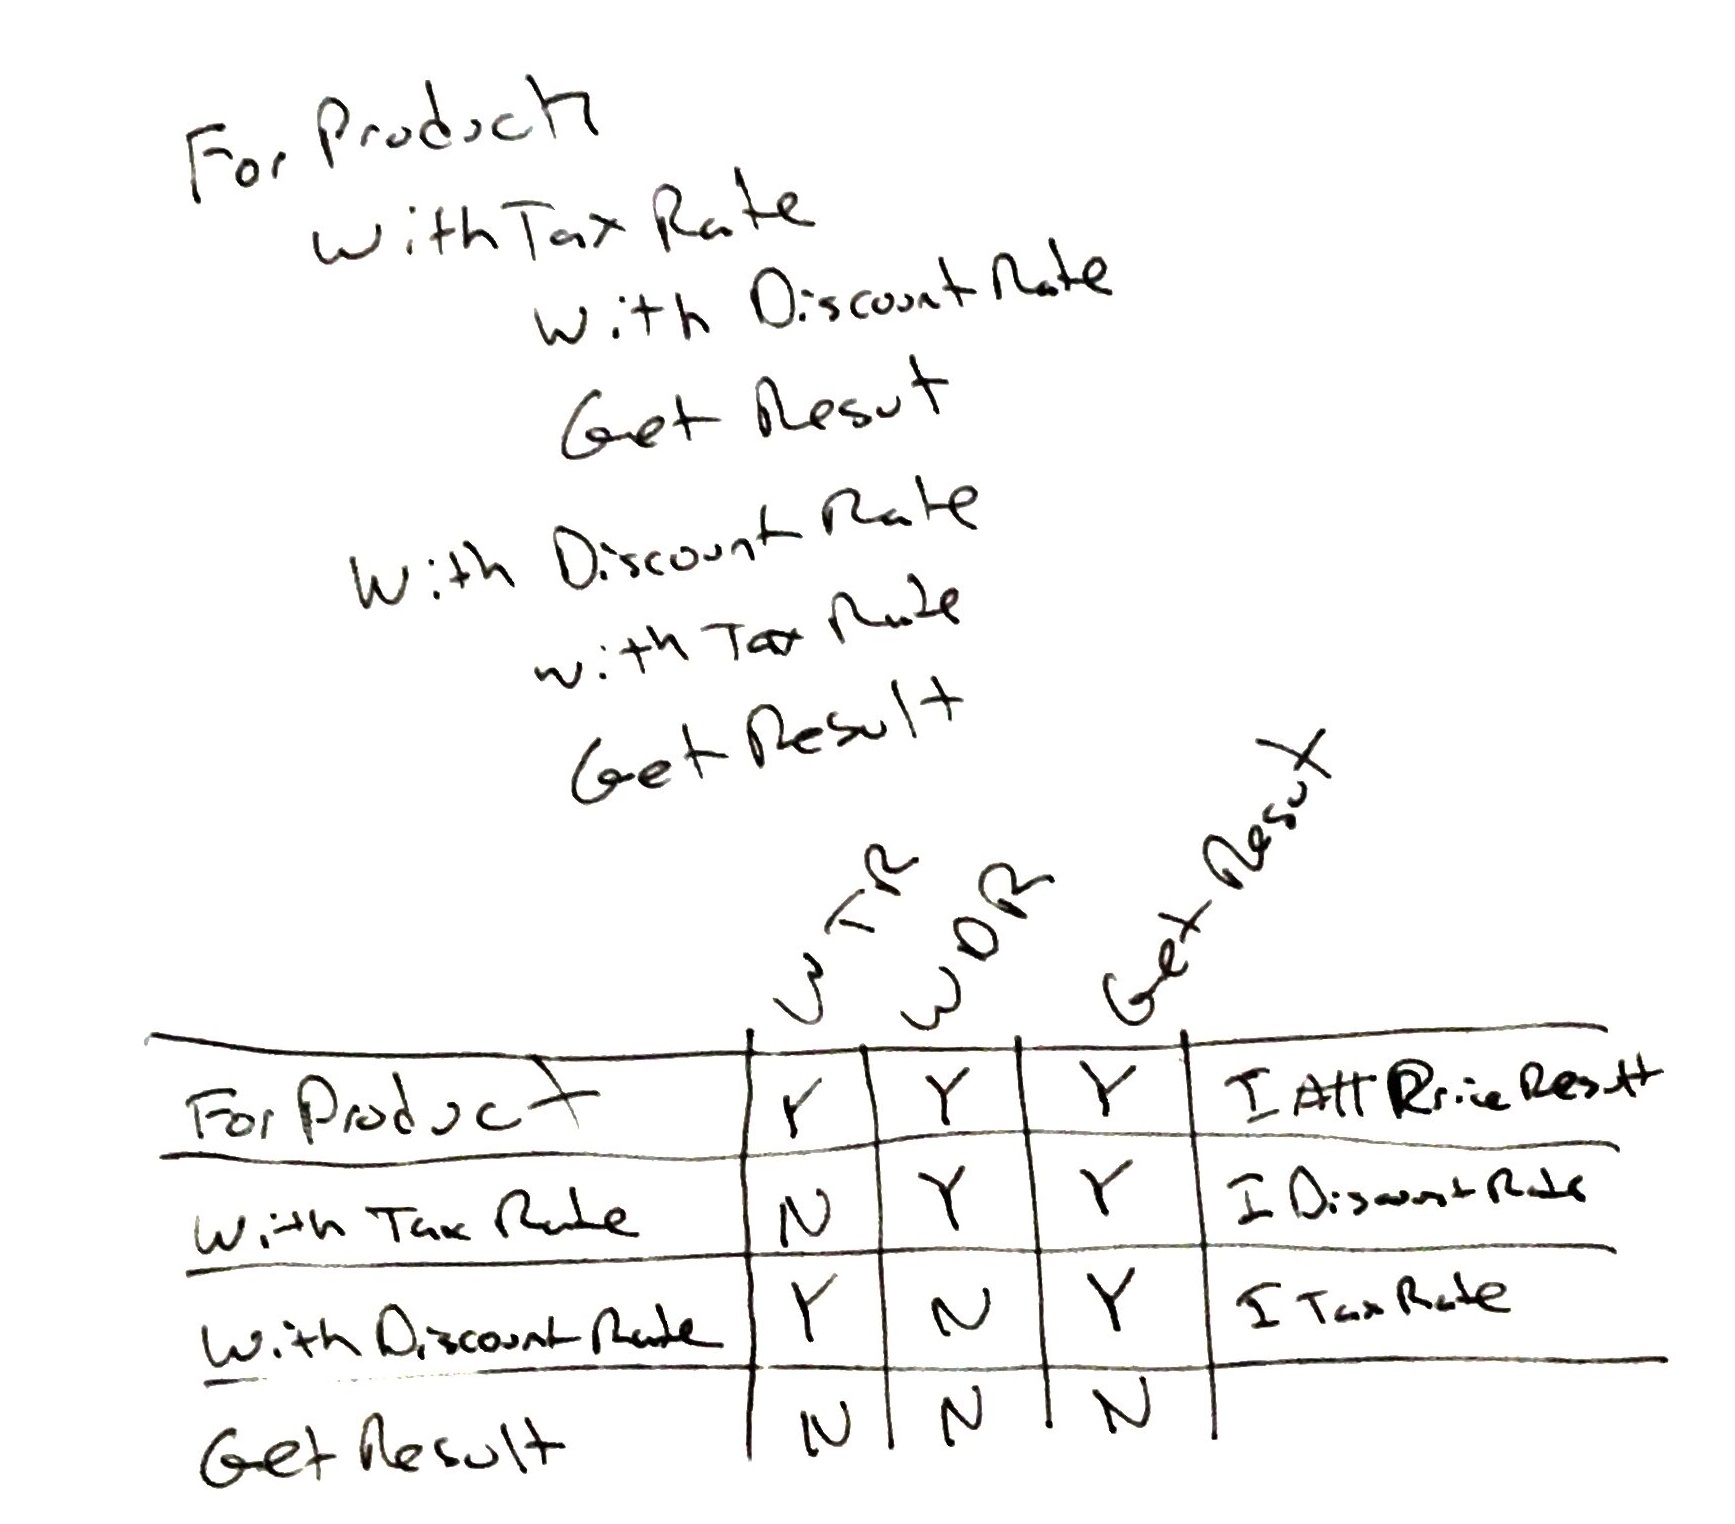 For Product
With Tax Rate
With Discount Rate
Get Resut
With Discount Rate
with Tax Rate
Get Result
WTR WDR Get Resut
For Product Y Y Y I Att Price Result
With Tax Rate N Y Y I Discount Rate
With Discount Rate Y N Y I Tax Rate
Get Result N N N